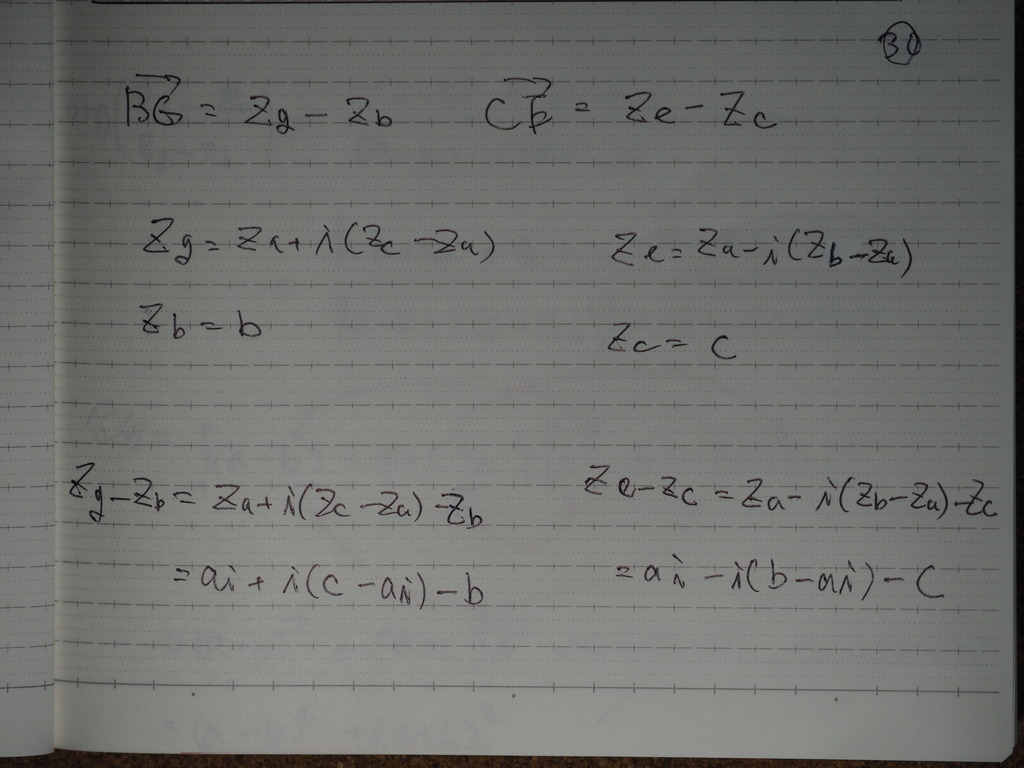 30
BG = Zg - Zb CE = Ze - Zc
Zg = Za + i(Zc - Za) Ze = Za - i(Zb - Za)
Zb = b Zc = c
Zg - Zb = Za + i(Zc - Za) - Zb Ze - Zc = Za - i(Zb - Za) - Zc
= ai + i(c - ai) - b = ai - i(b - ai) - c